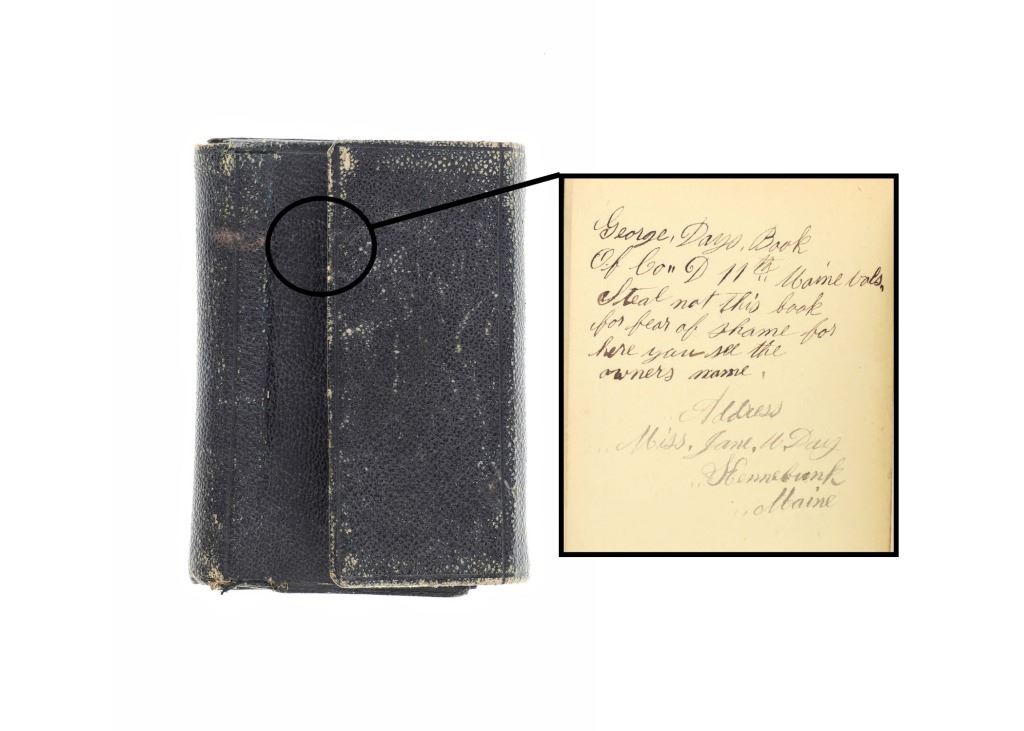 George, Days, Book
Of Co" D 11th Maine Vols.
Steal not this book
for fear of shame for
here you see the
owners name.
Address
Miss, Jane, U. Day
Kennebunk
Maine